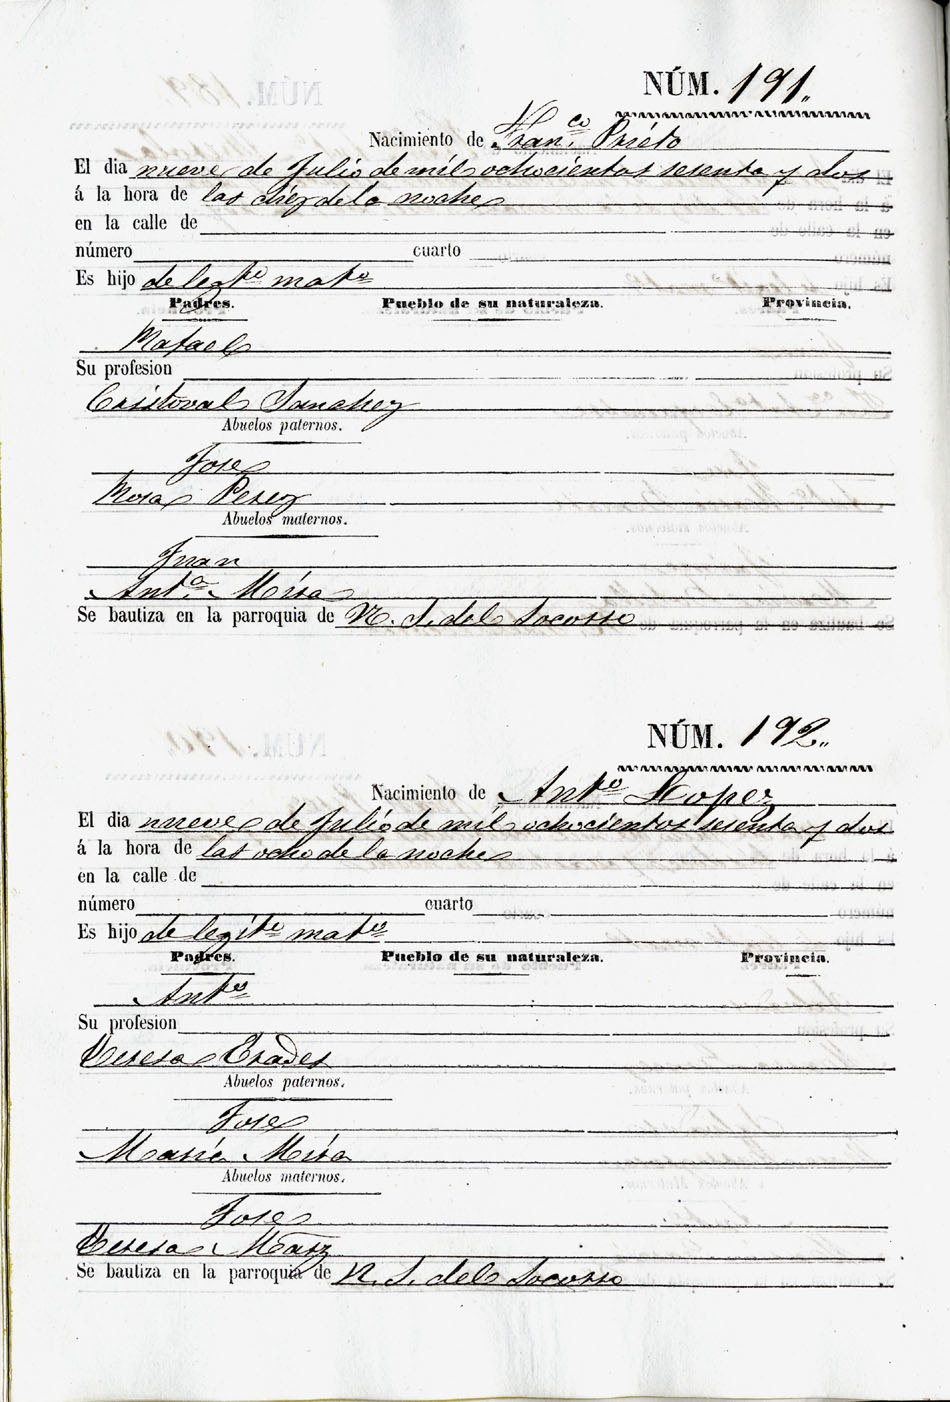 NÚM. 191.
Nacimiento de Fran.co Prieto
El dia nueve de Julio de mil ochocientos sesenta y dos
á la hora de las diez de la noche
en la calle de
número cuarto
Es hijo de legto mato
Padres. Pueblo de su naturaleza. Provincia.
Rafael
Su profesion
Cristoval Sanchez
Abuelos paternos.
Jose
Rosa Perez
Abuelos maternos.
Juan
Ant.a Mira
Se bautiza en la parroquia de N. S. del Socorro
NÚM. 192.
Nacimiento de Anto Lopez
El dia nueve de Julio de mil ochocientos sesenta y dos
á la hora de las ocho de la noche
en la calle de
número cuarto
Es hijo de legito mato
Padres. Pueblo de su naturaleza. Provincia.
Anto
Su profesion
Teresa Erades
Abuelos paternos.
Jose
María Mira
Abuelos maternos.
Jose
Teresa
Se bautiza en la parroquia de N. S. del Socorro